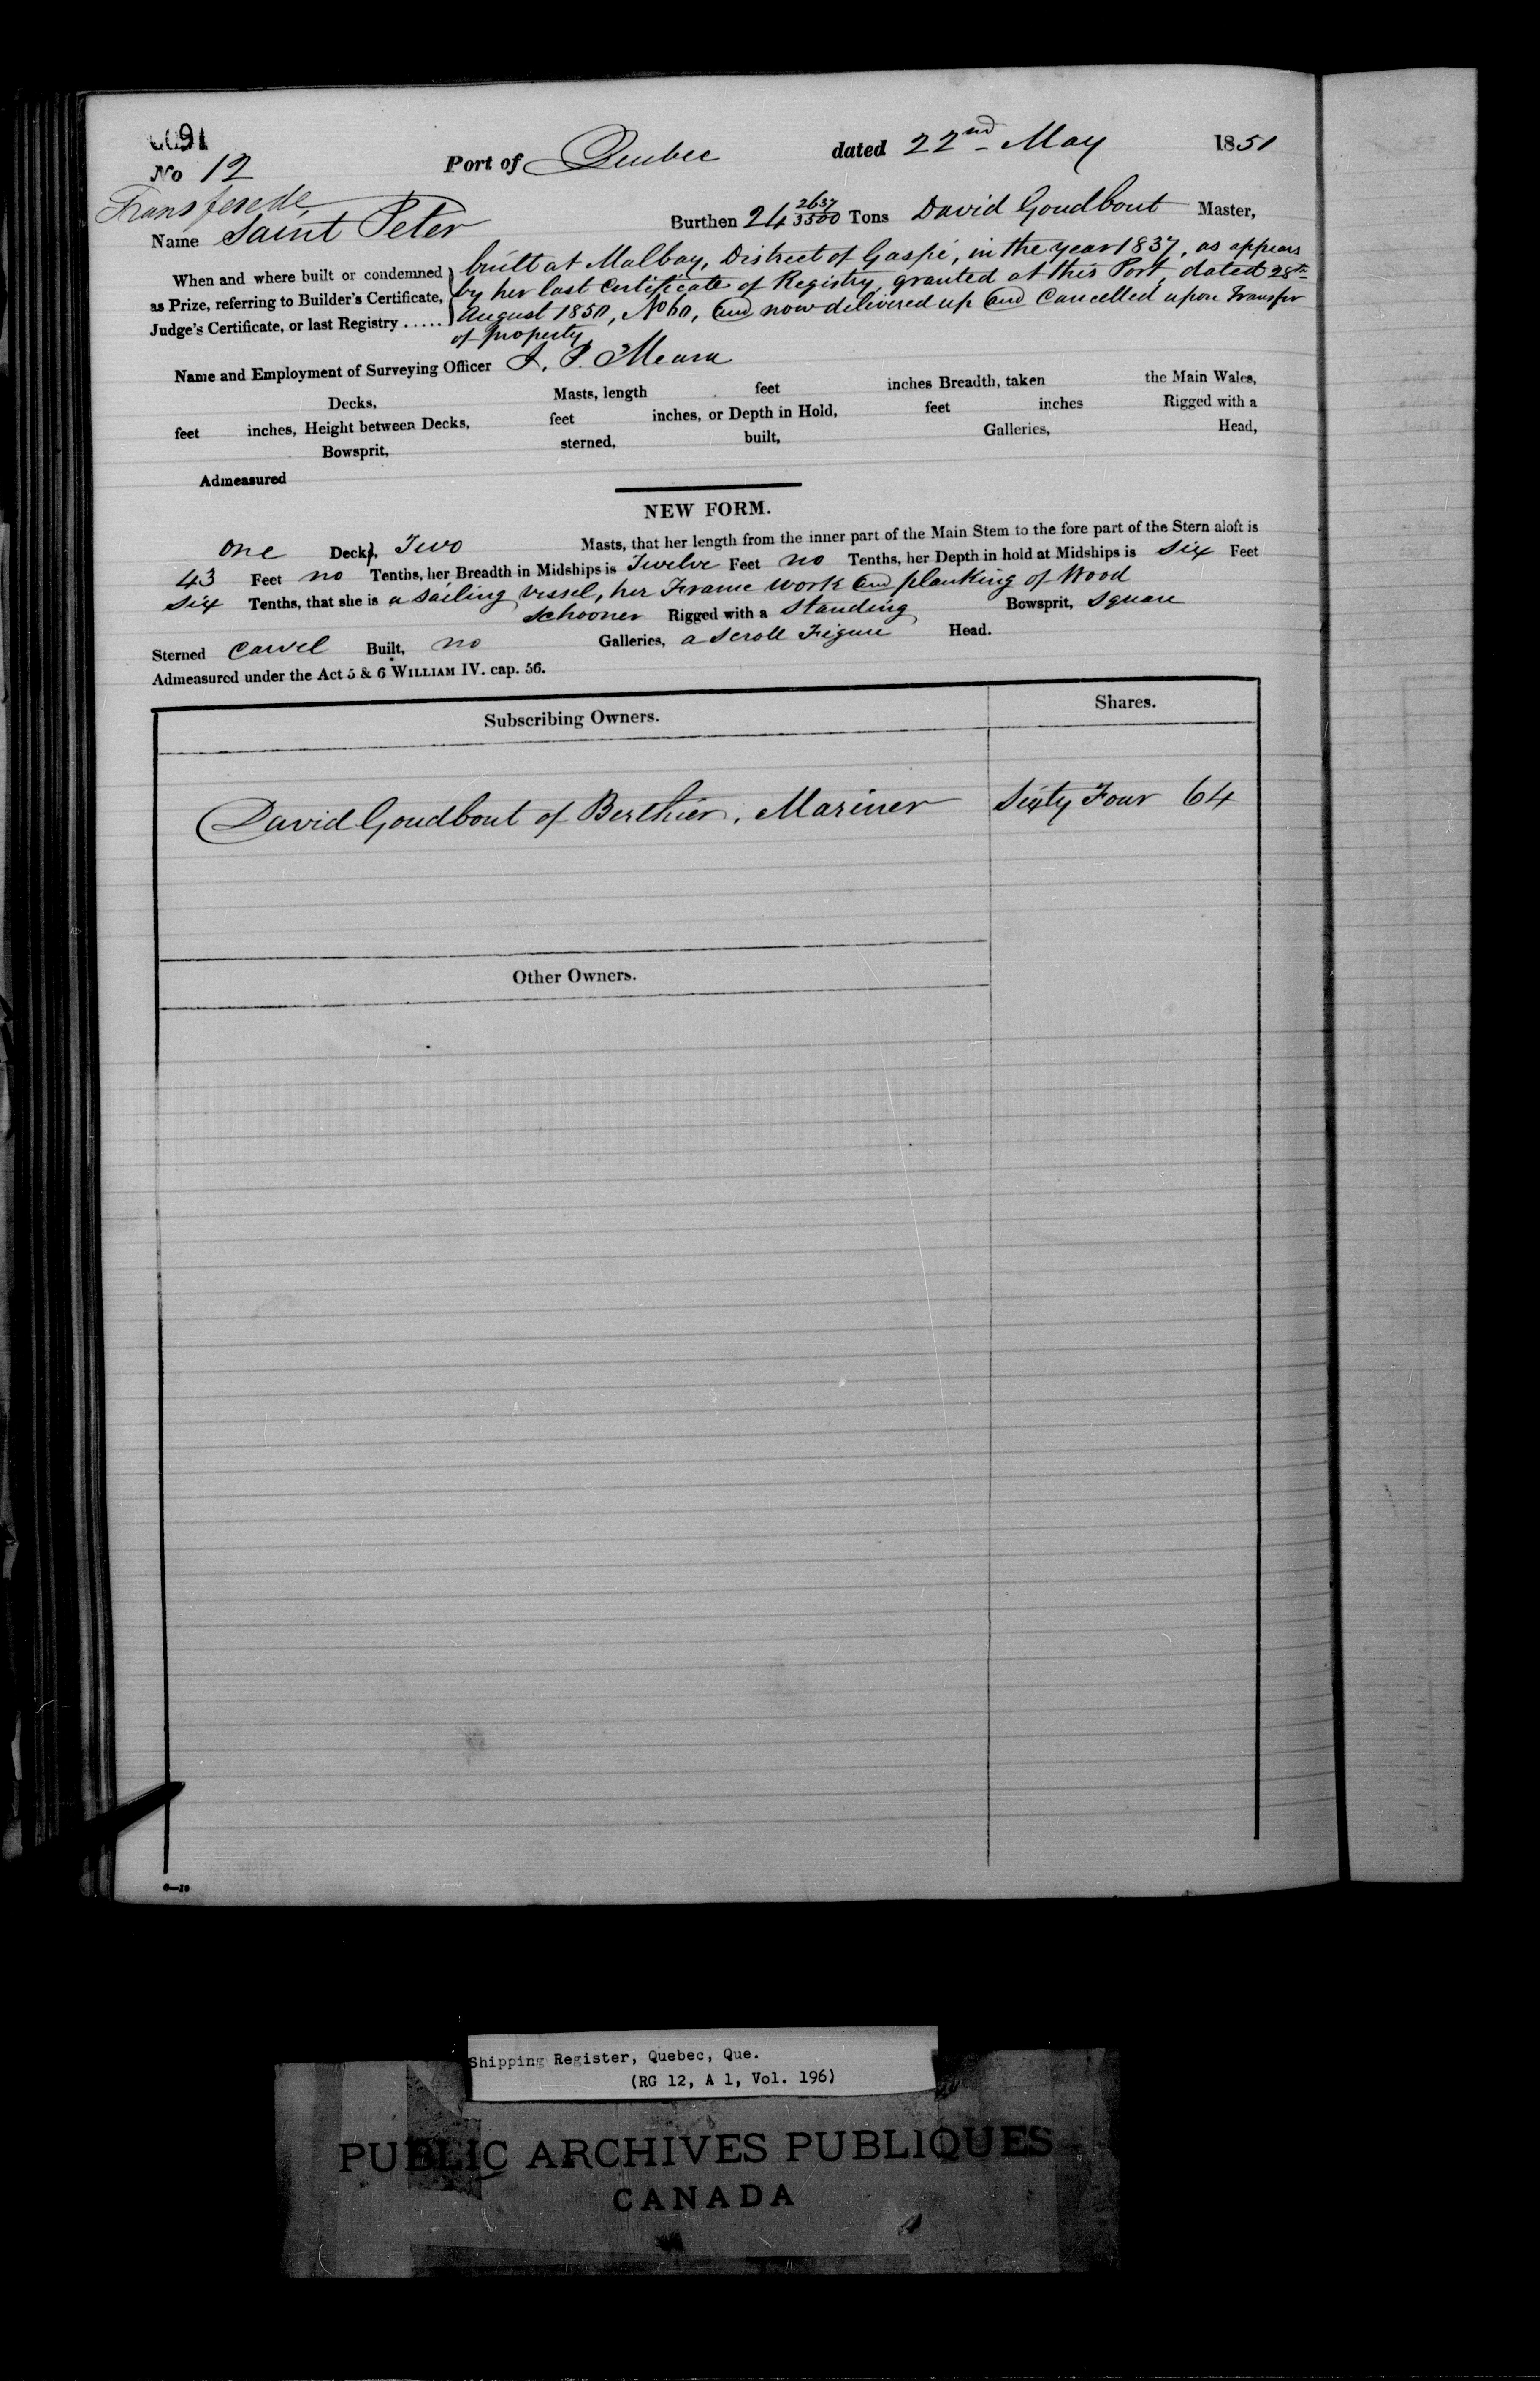 91
No 12 Port of Quebec dated 22nd May 1851
Transferred
Name Saint Peter Burthen 24 2637/3500 Tons David Goudbout Master,
When and where built or condemned as Prize, referring to Builder's Certificate, Judge's Certificate, or last Registry .....
built at Malbay, District of Gaspé, in the year 1837, as appears
by her last Certificate of Registry, granted at this Port, dated 28th
August 1850, No 60, and now delivered up and Cancelled upon Transfer
of property.
Name and Employment of Surveying Officer J. P. Meara
Decks, Masts, length feet inches Breadth, taken the Main Wales,
feet inches, Height between Decks, feet inches, or Depth in Hold, feet inches Rigged with a
Bowsprit, sterned, built, Galleries, Head,
Admeasured
NEW FORM.
one Deck, Two Masts, that her length from the inner part of the Main Stem to the fore part of the Stern aloft is
43 Feet no Tenths, her Breadth in Midships is Twelve Feet no Tenths, her Depth in hold at Midships is six Feet
six Tenths, that she is a sailing vessel, her Frame work and planking of Wood
schooner Rigged with a standing Bowsprit, square
Sterned Carvel Built, no Galleries, a scroll Figure Head.
Admeasured under the Act 5 & 6 WILLIAM IV. cap. 56.
Subscribing Owners. Shares.
David Goudbout of Berthier, Mariner Sixty Four 64
Other Owners.
Shipping Register, Quebec, Que.
(RG 12, A 1, Vol. 196)
PUBLIC ARCHIVES PUBLIQUES
CANADA